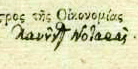 τρος τῆς Οἰκονομίας
Νοταρᾶς